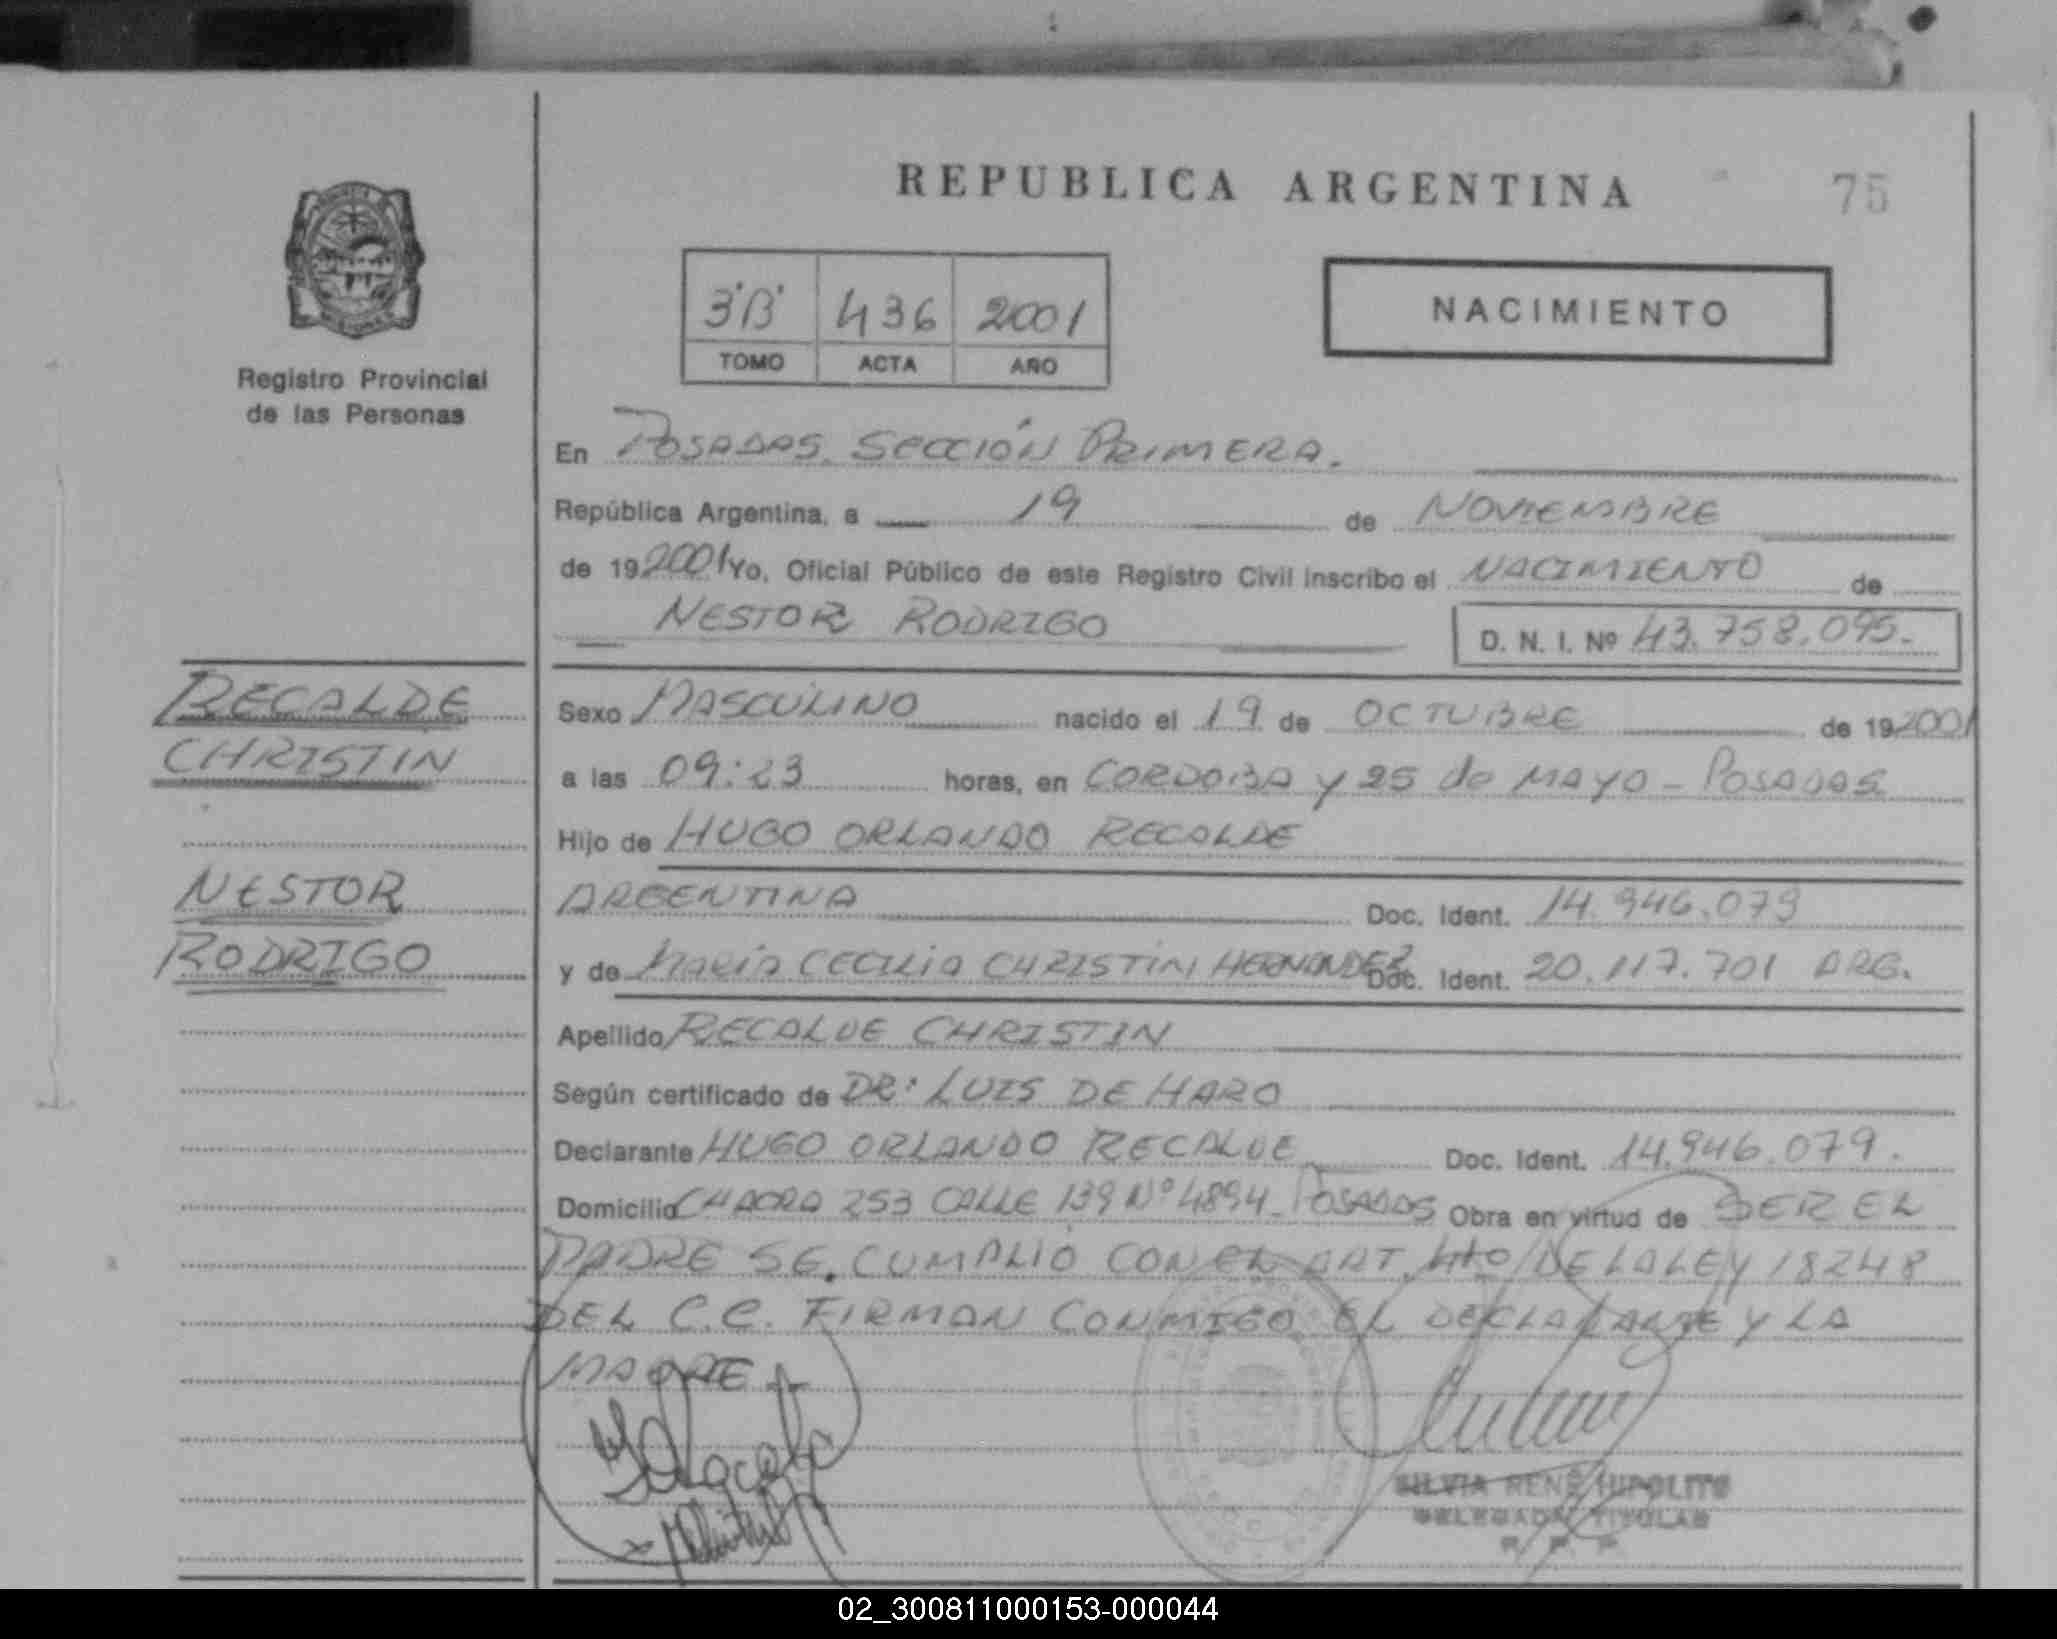 REPUBLICA ARGENTINA
75
3"B" 436 2001
TOMO ACTA AÑO
NACIMIENTO
Registro Provincial
de las Personas
En POSADAS. SECCIÓN PRIMERA.
República Argentina, a 19 de NOVIEMBRE
de 192001 Yo, Oficial Público de este Registro Civil inscribo el NACIMIENTO de
NESTOR RODRIGO
D. N. I. Nº 43.758.095.-
RECALDE
CHRISTIN
NESTOR
RODRIGO
Sexo MASCULINO nacido el 19 de OCTUBRE de 192001
a las 09:23 horas, en CORDOBA y 25 de MAYO - POSADAS
Hijo de HUGO ORLANDO RECALDE
ARGENTINA Doc. Ident. 14.946.079
y de MARÍA CECILIA CHRISTIN HERNANDEZ Doc. Ident. 20.117.701 ARG.
Apellido RECALDE CHRISTIN
Según certificado de DR: LUIS DE HARO
Declarante HUGO ORLANDO RECALDE Doc. Ident. 14.946.079.
Domicilio CHACRA 253 CALLE 139 Nº 4894 - POSADAS Obra en virtud de SER EL
PADRE SE. CUMPLIÓ CON EL ART. 4to DE LA LEY 18248
DEL C.C. FIRMAN CONMIGO EL DECLARANTE Y LA
MADRE
SILVIA RENÉ HIPOLITO
DELEGADA TITULAR
R. P. P.
02_300811000153-000044